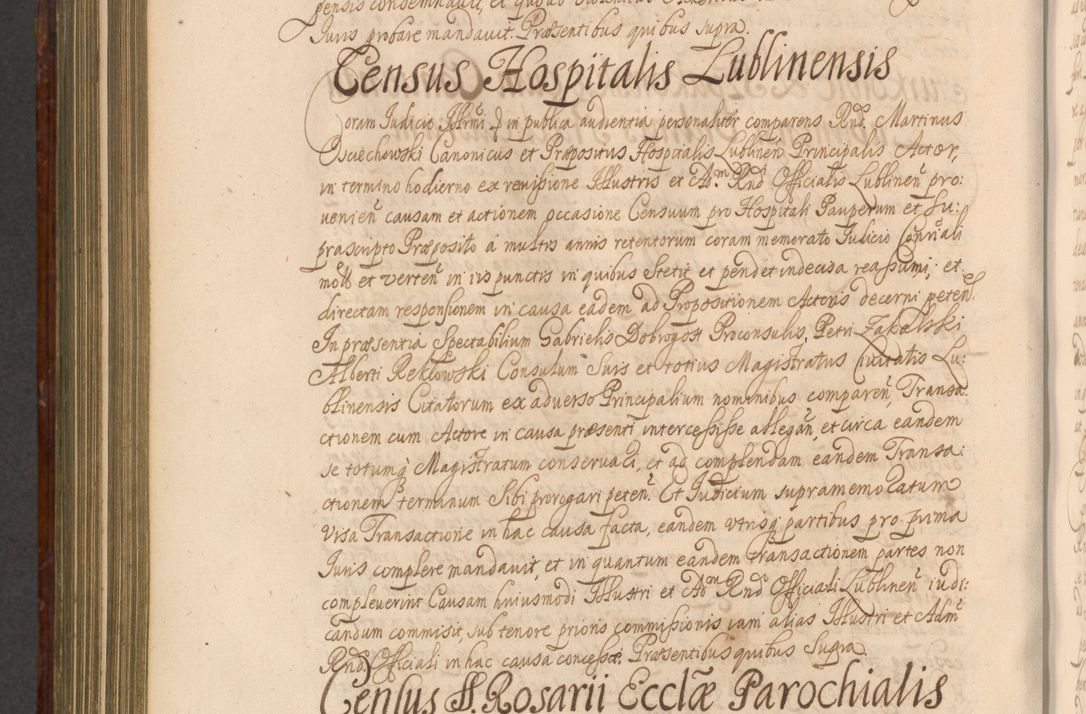 Juris probare mandavit. Præsentibus quibus supra.
Census Hospitalis Lublinensis
Coram Judicio Illrmi D in publica audientia personaliter comparens Rnd. Martinus
Osciechowski Canonicus et Præpositus Hospitalis Lublinen Principalis Actor,
in termino hodierno ex revisione Illustris et Adm Rndi Officialis Lublinen pro:
venien causam et actionem occasione Censuum pro Hospitali Pauperum et Su:
prascripto Præposito a multis annis retentorum coram memorato Judicio
et verten in iis punctis in quibus stetit et pendet indecisa reassumi, et
directam responsionem in causa eadem ad Propositionem Actoris decerni peten.
In præsentia Spectabilium Gabrielis Dobrogost Proconsulis, Petri Zakalski
Alberti Reklowski Consulum Suis et totius Magistratus Civitatis Lu:
blinensis Citatorum ex adverso Principalium nominibus comparen, Transa
ctionem cum Actore in causa præsenti intercessisse allegan, et circa eandem
se totumq Magistratum conservari, et ad complendam eandem Transa:
ctionem terminum sibi prorogari peten. Et Judicium supramemoratum
visa Transactione in hac causa facta, eandem utrisq partibus pro prima
Juris complere mandavit, et in quantum eandem transactionem partes non
compleverint Causam huiusmodi Illustri et Adm Rnd Officiali Lublinen iudi:
candam commisit, sub tenore prioris commissionis iam alias Illustri et Adm
Rndo Officiali in hac causa concessæ. Præsentibus quibus supra.
Census S. Rosarii Ecclæ Parochialis